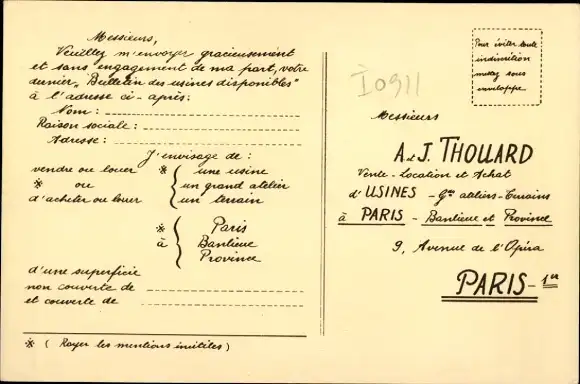 Messieurs,
Veuillez m'envoyer gracieusement
et sans engagement de ma part, votre
dernier „Bulletin des usines disponibles"
à l'adresse ci-après:
Nom:
Raison sociale:
Adresse:
J'envisage de:
vendre ou louer * une usine
* ou un grand atelier
d'acheter ou louer un terrain
* Paris
à Banlieue
Province
d'une superficie
non couverte de
et couverte de
* (Rayer les mentions inutiles)
Pour éviter toute
indiscrétion
mettez sous
enveloppe
I0911
Messieurs
A et J. THOUARD
Vente - Location et Achat
d'USINES - Gds ateliers - Terrains
à PARIS - Banlieue et Province
9, Avenue de l'Opéra
PARIS - 1er